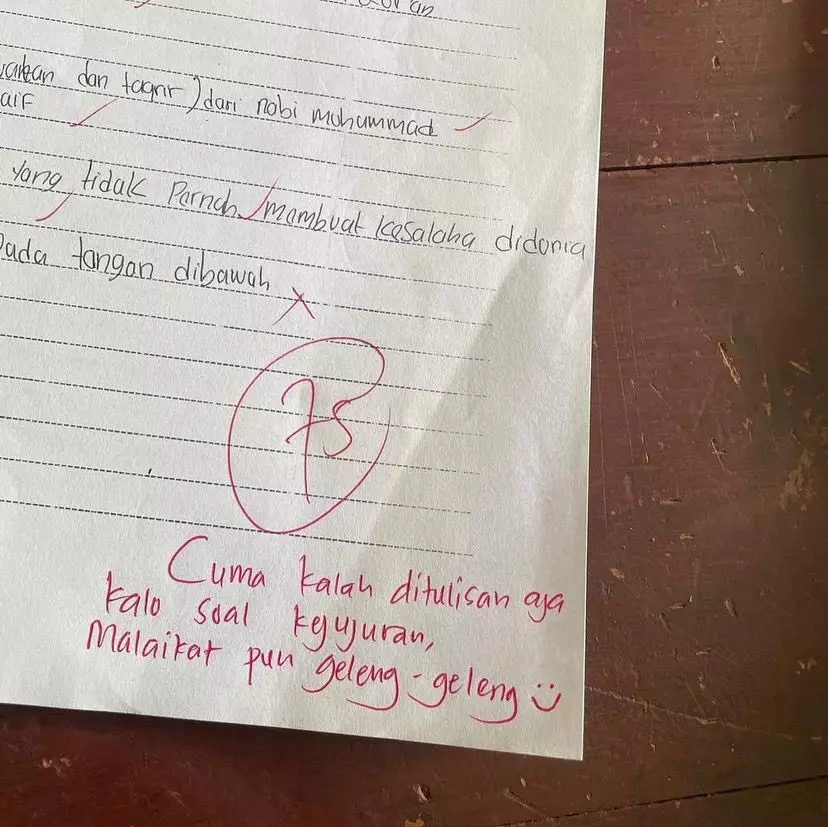 dan taqrir) dari nobi muhammad
aif
yang tidak Pernah membuat kesalaha didonia
Pada tangan dibawah
75
Cuma kalah ditulisan aja
kalo soal kejujuran,
Malaikat pun geleng-geleng